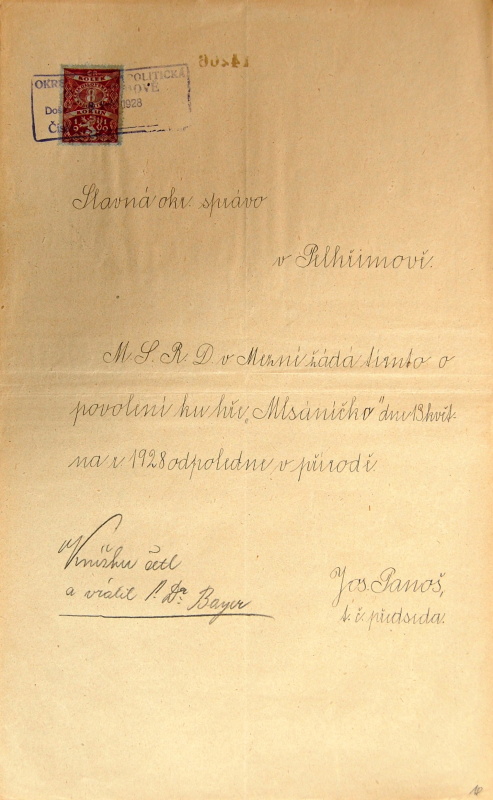 14206
OKR POLITICKÁ
KOLEK
Slavná okr. správo
v Pelhřimově.
M. S. R. D. v Mezní žádá tímto o
povolení ku hře „Mlsáníčko" dne 13 květ-
na r. 1928 odpoledne v přírodě.
Knížku četl
a vrátil P. Dr. Bayer
Jos. Panoš,
t. č. předseda.